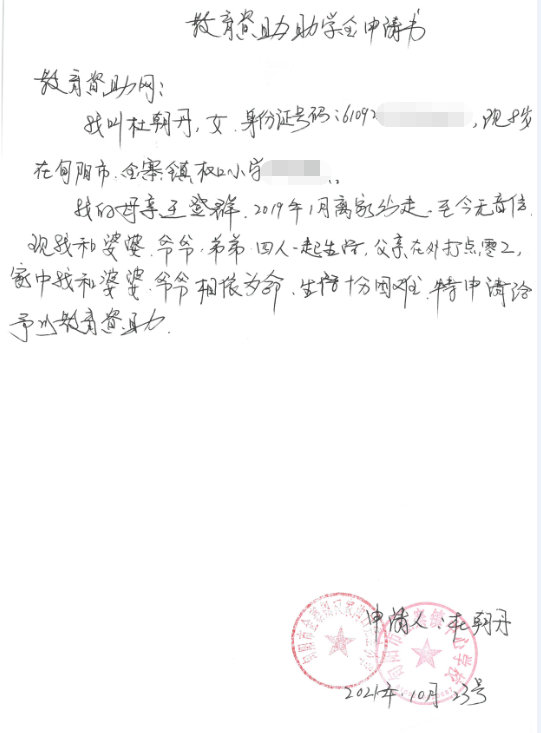 教育资助助学金申请书
教育资助网：
我叫杜朝丹，女，身份证号码：61092，现8岁
在旬阳市金寨镇权口小学
我的母亲王登群，2019年1月离家出走，至今无音信
现我和婆婆、爷爷、弟弟四人一起生活，父亲在外打点零工，
家中我和婆婆、爷爷相依为命，生活十分困难，特申请给
予以教育资助。
申请人：杜朝丹
2021年10月23号